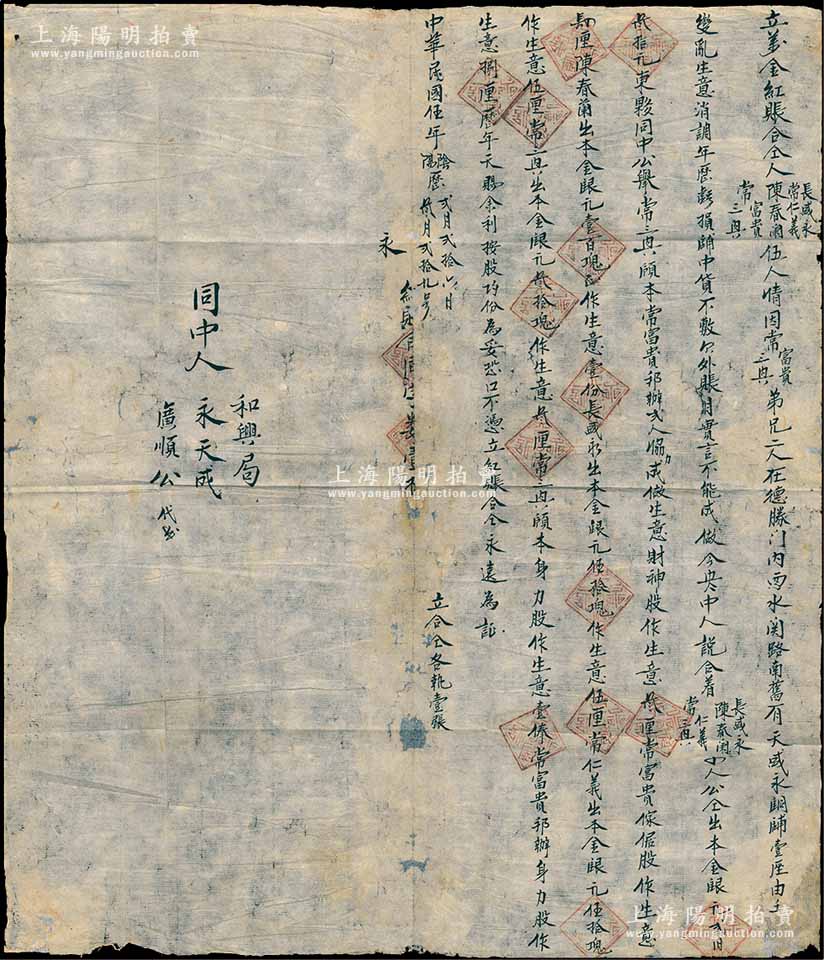 立萬金紅賬合仝人 長盛永 常仁義 陳春蘭 富貴 常三興 伍人情因常 富貴 三興 弟兄二人在德勝门内西水関路南舊有天盛永 鋪壹座由壬
变亂生意消調年歷虧損鋪中貨不敷欠外賬目實言不能成做今央中人說合着 長盛永 陳春蘭 仁義 常三興 人公仝出本金銀元弍百
弍拾元東夥同中公舉常三興頋本常富貴邦辦弍人協力成做生意財神股作生意弍厘常富貴傢俱股作生意
厘陳春蘭出本金銀元壹百塊正作生意壹份長盛永出本金銀元伍拾塊作生意伍厘常仁義出本金銀元伍拾塊
作生意伍厘常三興出本金銀元弍拾塊作生意弍厘常三興頋本身力股作生意壹俸常富貴邦辦身力股作
生意捌厘歷年天賜余利按股均份為妥恐口不憑立紅賬合仝永遠為証
中華民國伍年 陰 陽 歷 弍月弍拾六日 月弍拾九号
立合仝各執壹張
永
同中人 和興局 永天成 廣順公 代书
上海陽明拍賣
www.yangmingauction.com
上海陽明拍賣
www.yangmingauction.com
上海陽明拍賣
www.yangmingauction.com